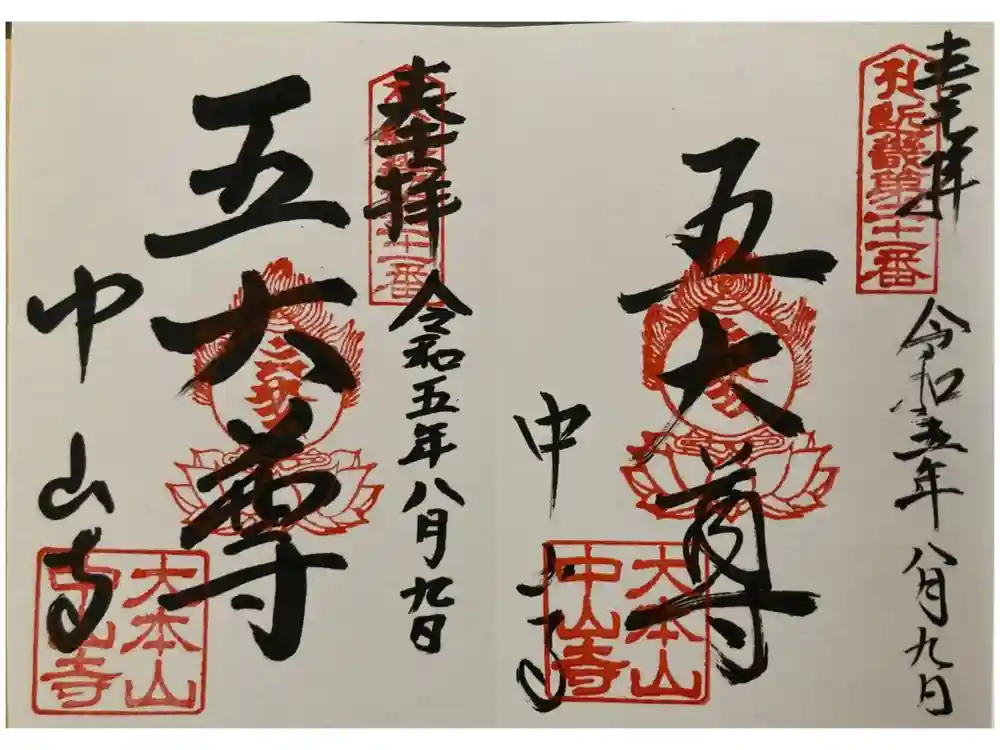 奉拝
近畿第二十一番
令和五年 八月九日
五大尊
大本山
中山寺
中山寺
奉拝
二十一番
令和五年八月九日
五大尊
大本山
中山寺
中山寺